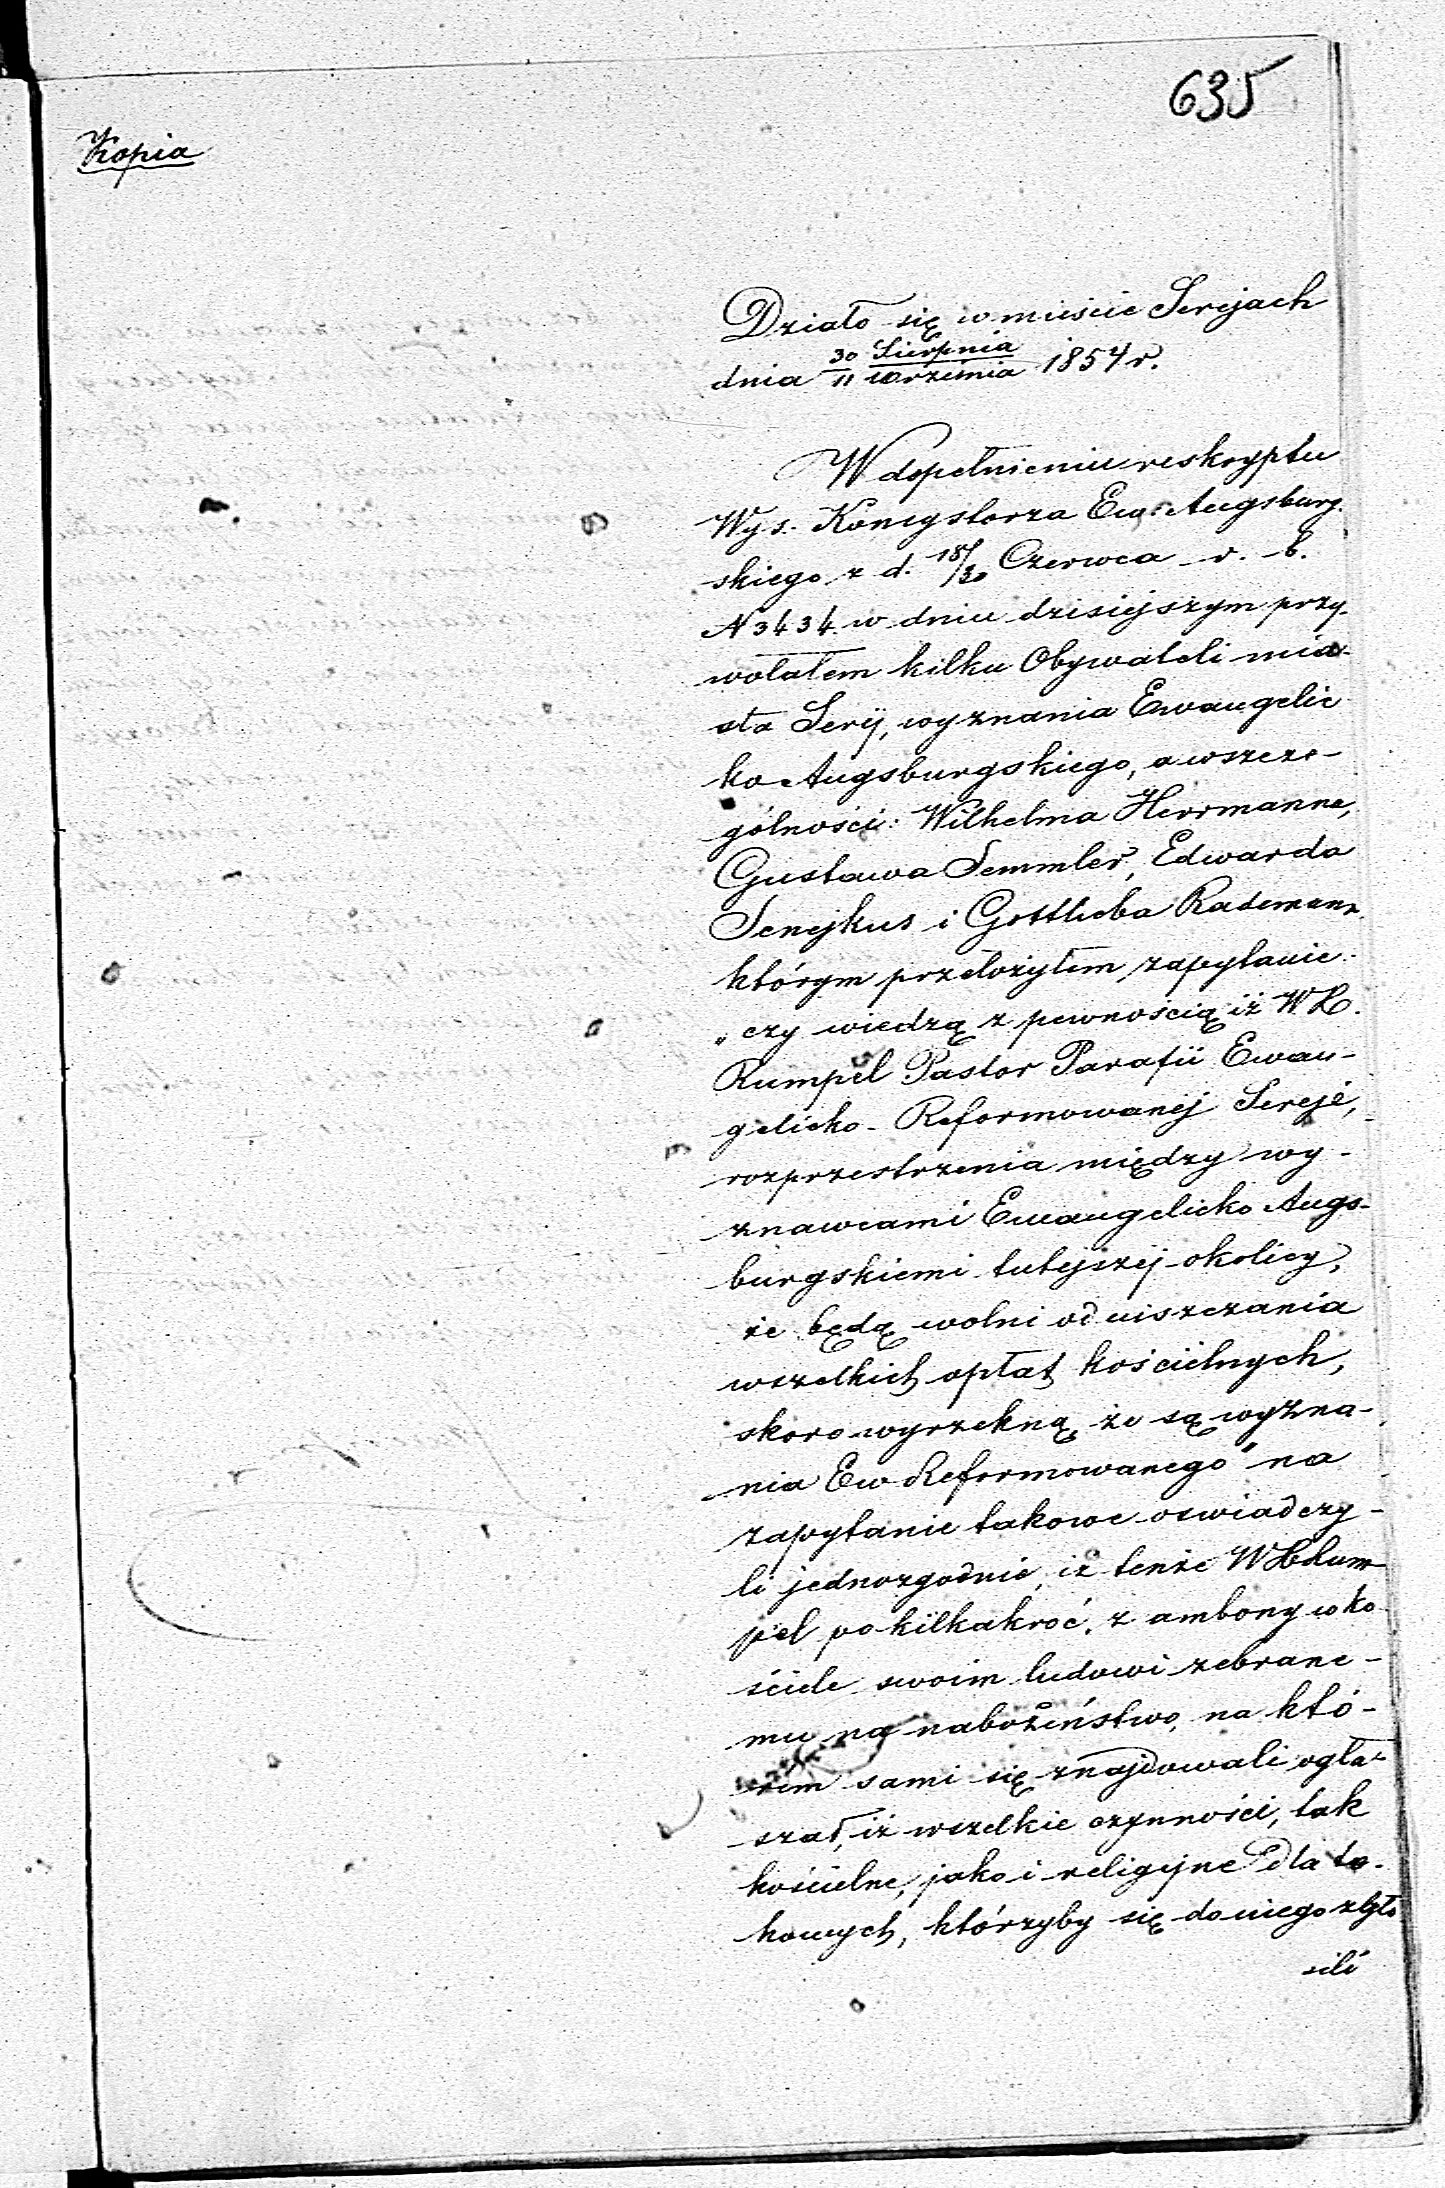 635
Kopia
Działo się w mieście Serejach
dnia 30 Sierpnia / 11 września 1854 r.
W dopełnieniu reskryptu
Wys. Konsystorza Ew. Augsburg.
skiego z d. 18/30 Czerwca r. b.
N 3434 w dniu dzisiejszym przy-
wołałem kilku Obywateli mia-
sta Serij, wyznania Ewangelic
ko Augsburgskiego, a wszcze-
gólności: Wilhelma Herrmanna,
Gustawa Semmler, Edwarda
Senejkus i Gottlieba Rademann
którym przełożyłem zapytanie:
"czy wiedzą z pewnością iż WX.
Rumpel Pastor Parafii Ewan-
gelicko-Reformowanej Sereje,
rozprzestrzenia między wy-
znawcami Ewangelicko Augs-
burgskiemi tutejszej okolicy,
że będą wolni od uiszczania
wszelkich opłat kościelnych,
skoro wyrzekną, że są wyzna-
nia Ew Reformowanego" na
zapytanie takowe oswiadczy-
li jednozgodnie, iż tenże WX Rum
pel po kilkakroć, z ambony w ko
ściele swoim ludowi zebrane-
mu na nabożeństwo, na któ-
rem sami się znajdowali ogła-
szał, iż wszelkie czynności, tak
kościelne, jako i religijne dla ta-
kowych, którzyby się do niego zgło
sili